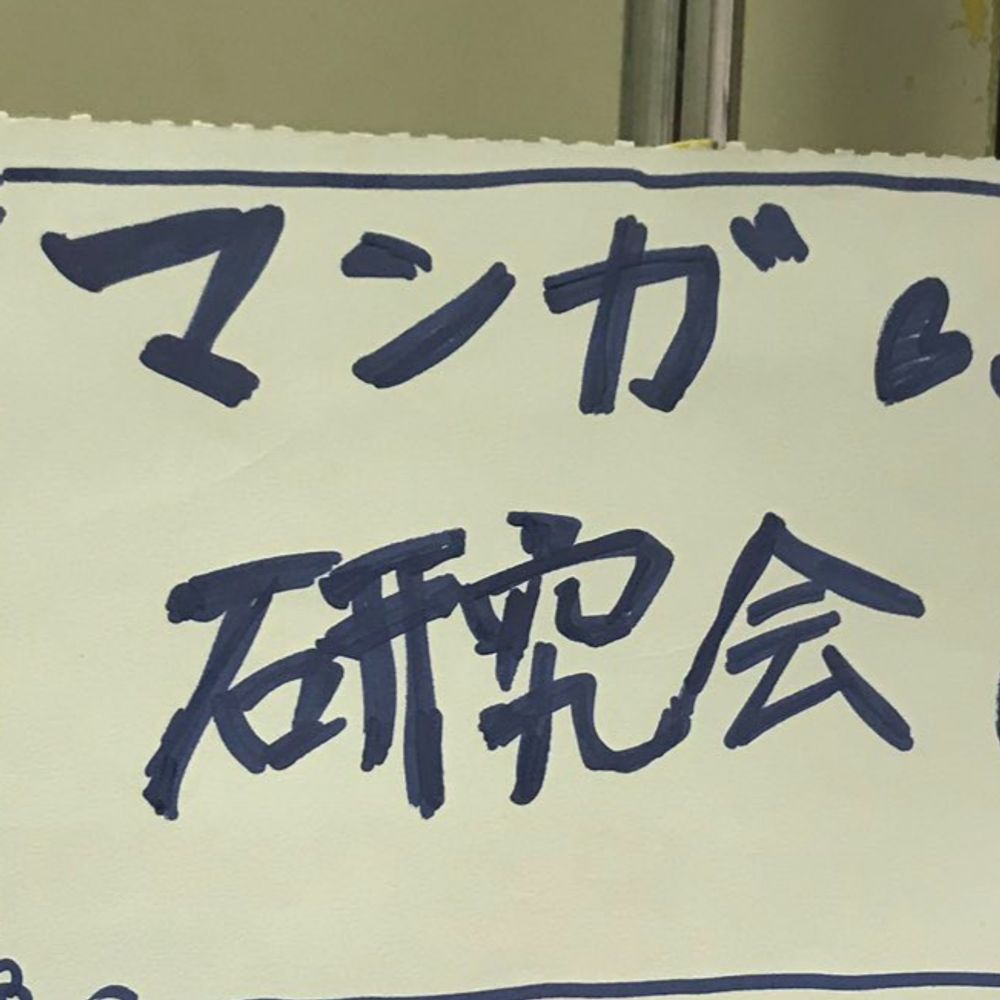 マンガ
研究会